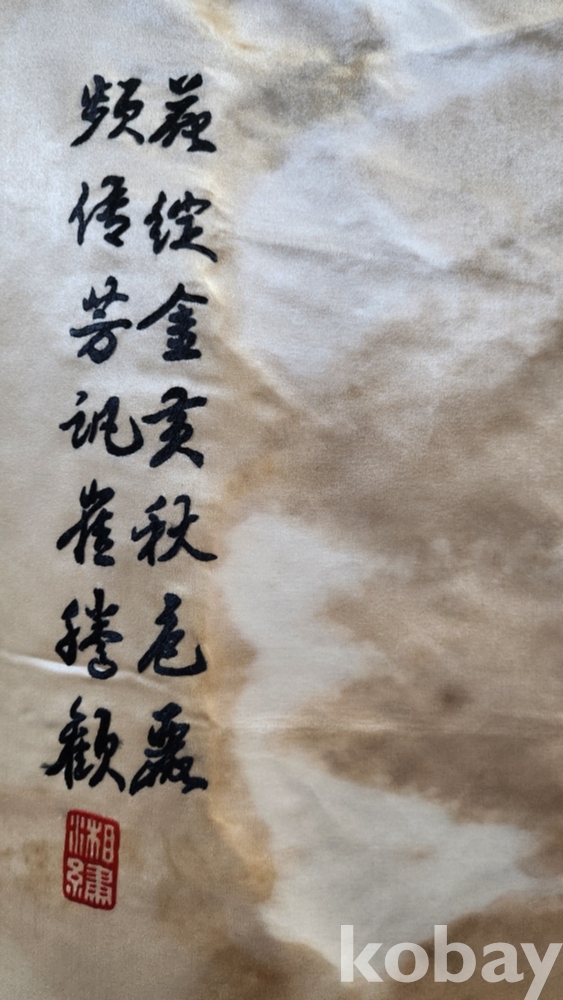 綻金黄秋色麗
頻傳芳訊雀騰歡
湘繡
kobay